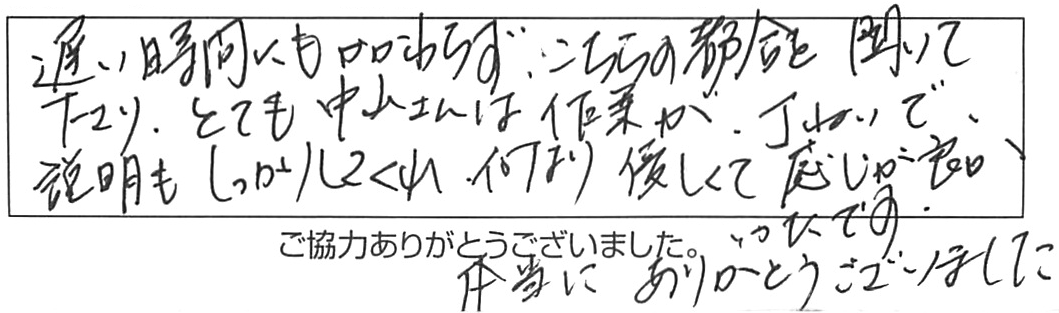 遅い時間にもかかわらず、こちらの都合を聞いて
下さり、とても中山さんは作業が、丁ねいで、
説明もしっかりしてくれ、何より優しくて感じが良か
ったです。
ご協力ありがとうございました。
本当にありがとうございました